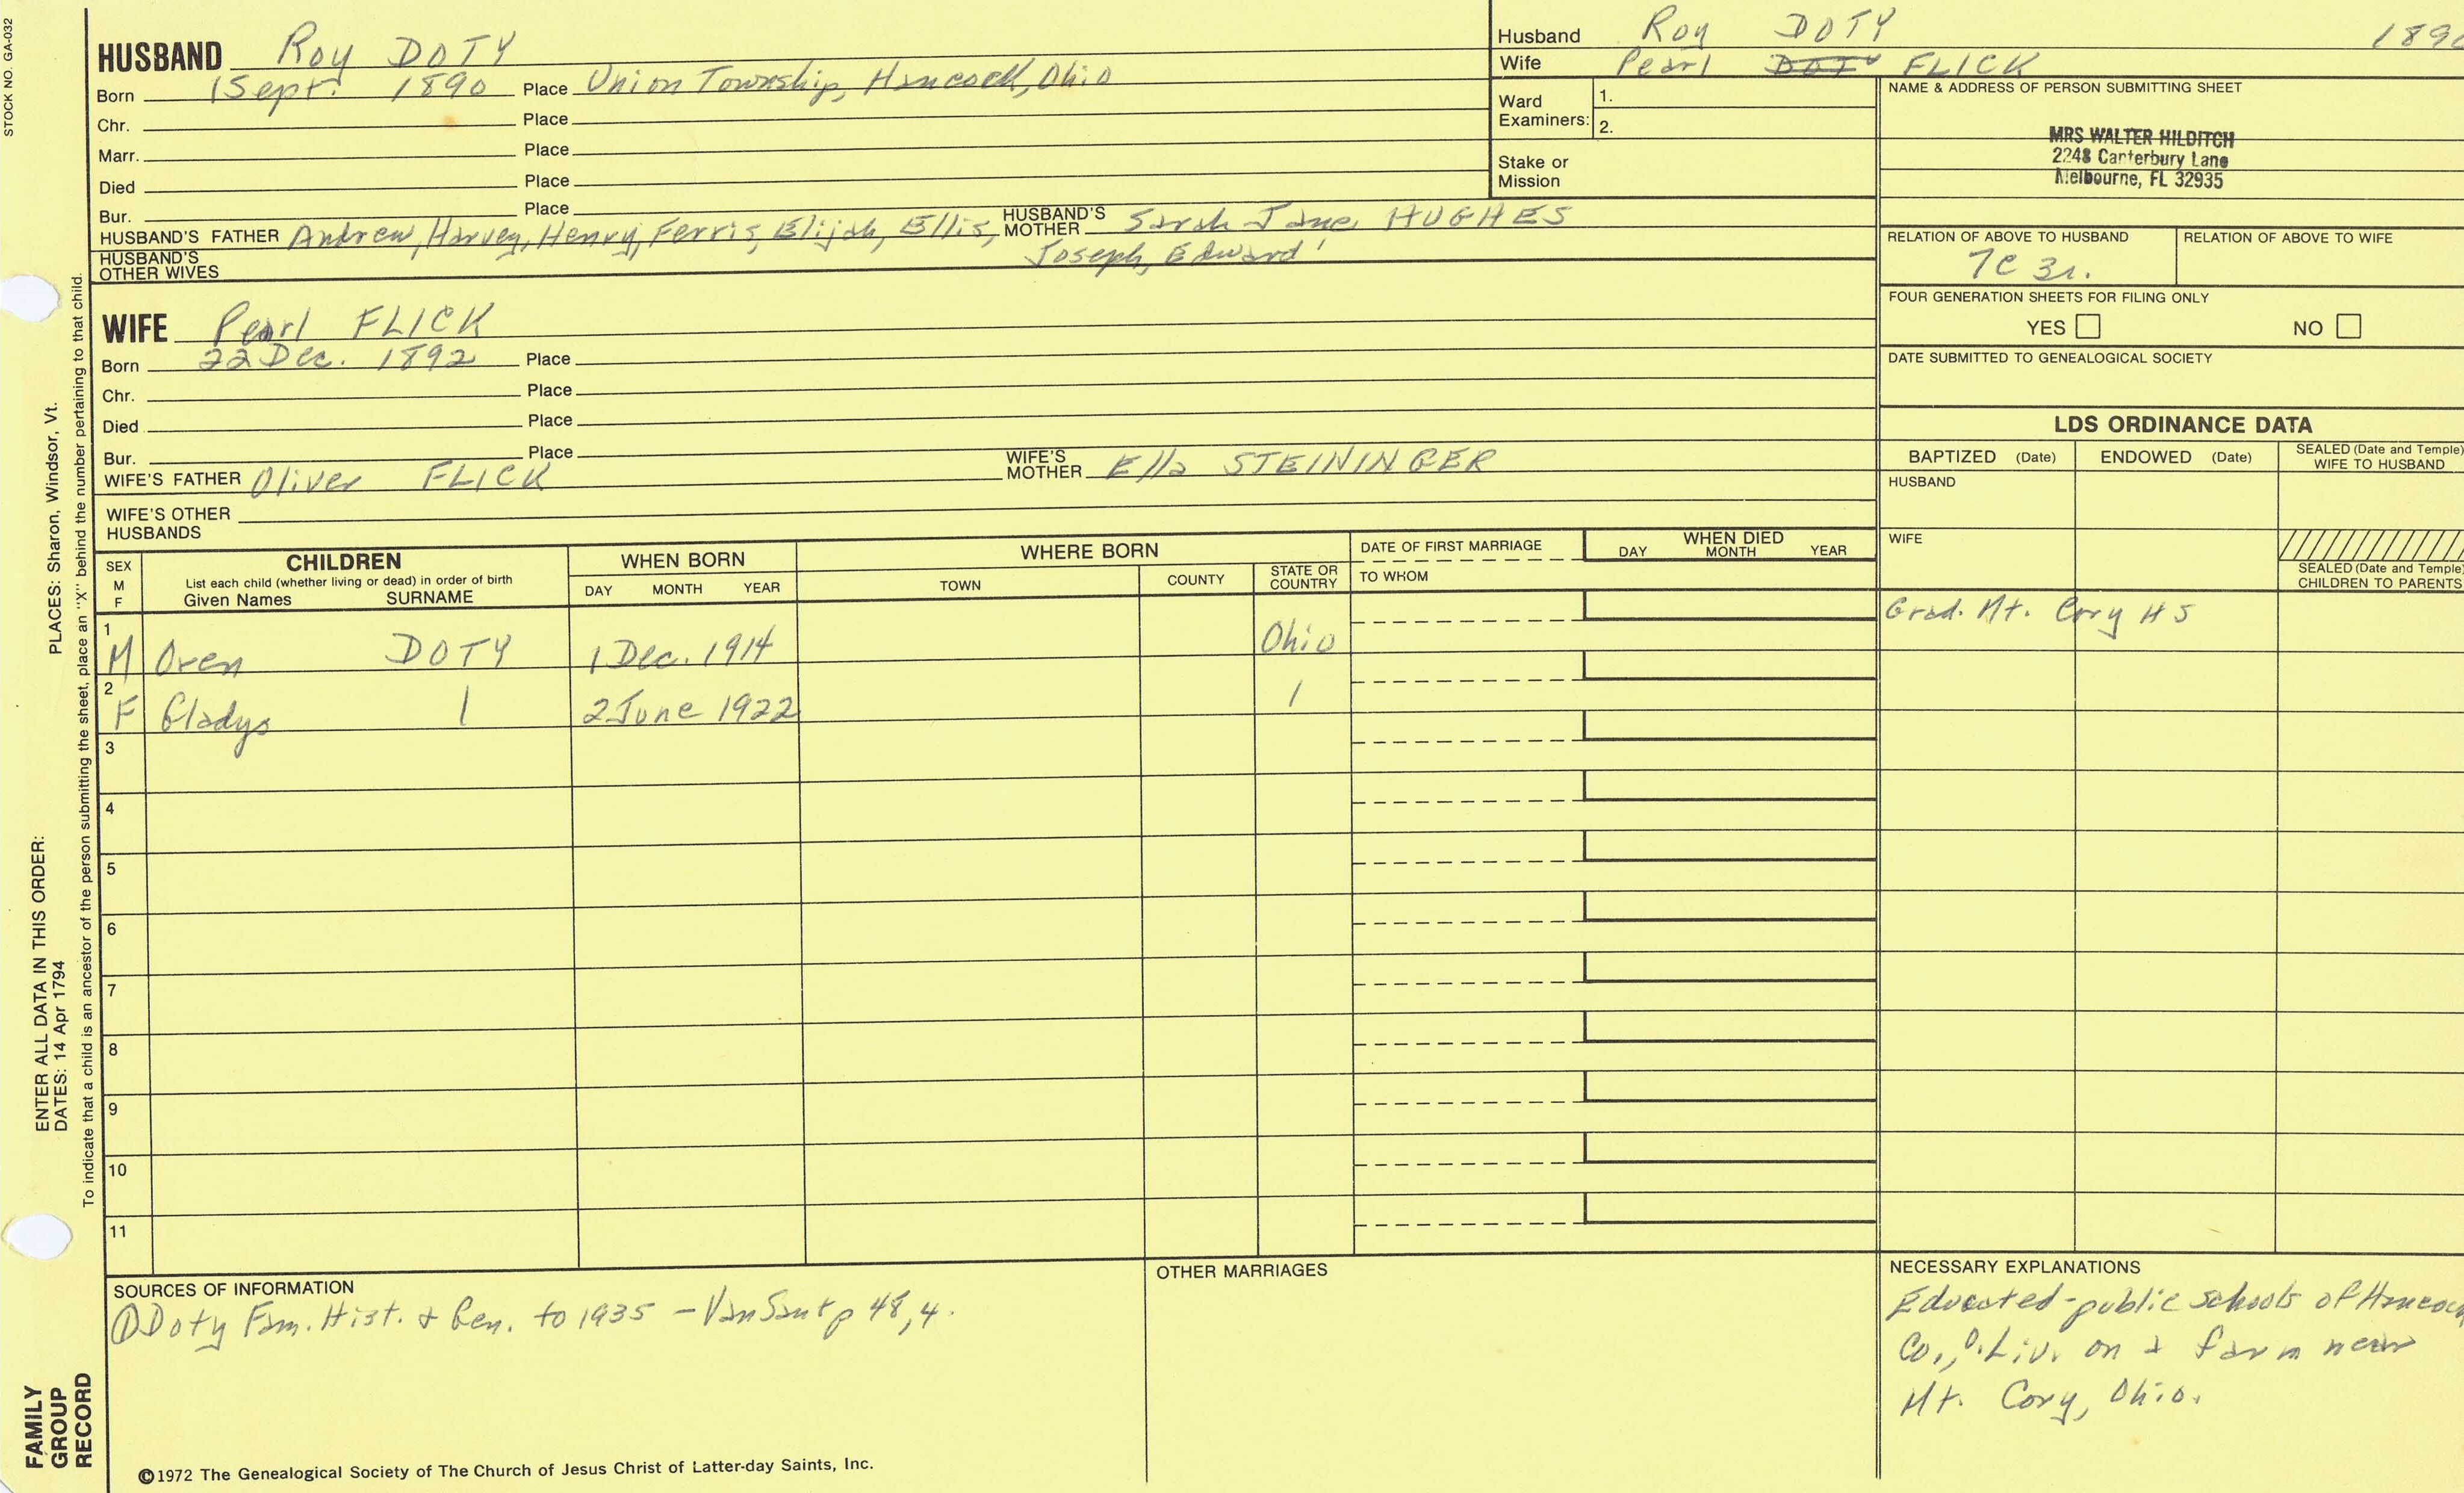 STOCK NO. GA-032
HUSBAND Roy DOTY
Born 1 Sept. 1890 Place Union Township, Hancock, Ohio
Chr. Place
Marr. Place
Died Place
Bur. Place
HUSBAND'S FATHER Andrew, Harvey, Henry, Ferris, Elijah, Ellis, HUSBAND'S MOTHER Sarah Jane HUGHES
Joseph, Edward'
HUSBAND'S OTHER WIVES
WIFE Pearl FLICK
Born 22 Dec. 1892 Place
Chr. Place
Died Place
Bur. Place
WIFE'S FATHER Oliver FLICK WIFE'S MOTHER Ella STEININGER
WIFE'S OTHER HUSBANDS
Husband Roy DOTY 1890
Wife Pearl DOTY FLICK
Ward Examiners: 1.
2.
Stake or Mission
NAME & ADDRESS OF PERSON SUBMITTING SHEET
MRS WALTER HILDITCH
2248 Canterbury Lane
Melbourne, FL 32935
RELATION OF ABOVE TO HUSBAND RELATION OF ABOVE TO WIFE
7C 3r.
FOUR GENERATION SHEETS FOR FILING ONLY
YES NO
DATE SUBMITTED TO GENEALOGICAL SOCIETY
LDS ORDINANCE DATA
BAPTIZED (Date) ENDOWED (Date) SEALED (Date and Temple) WIFE TO HUSBAND
HUSBAND
WIFE
SEALED (Date and Temple) CHILDREN TO PARENTS
SEX M F
CHILDREN
List each child (whether living or dead) in order of birth
Given Names SURNAME
WHEN BORN
DAY MONTH YEAR
WHERE BORN
TOWN COUNTY STATE OR COUNTRY
DATE OF FIRST MARRIAGE
TO WHOM
WHEN DIED
DAY MONTH YEAR
1 M Oren DOTY 1 Dec. 1914 Ohio Grad. Mt. Cory HS
2 F Gladys | 2 June 1922 /
3
4
5
6
7
8
9
10
11
SOURCES OF INFORMATION
① Doty Fam. Hist. & Gen. to 1935 - VanSant p 48,4.
OTHER MARRIAGES
NECESSARY EXPLANATIONS
Educated - public schools of Hancock
Co., O. Liv. on a farm near
Mt. Cory, Ohio.
©1972 The Genealogical Society of The Church of Jesus Christ of Latter-day Saints, Inc.
ENTER ALL DATA IN THIS ORDER: PLACES: Sharon, Windsor, Vt.
DATES: 14 Apr 1794
To indicate that a child is an ancestor of the person submitting the sheet, place an "X" behind the number pertaining to that child.
FAMILY
GROUP
RECORD